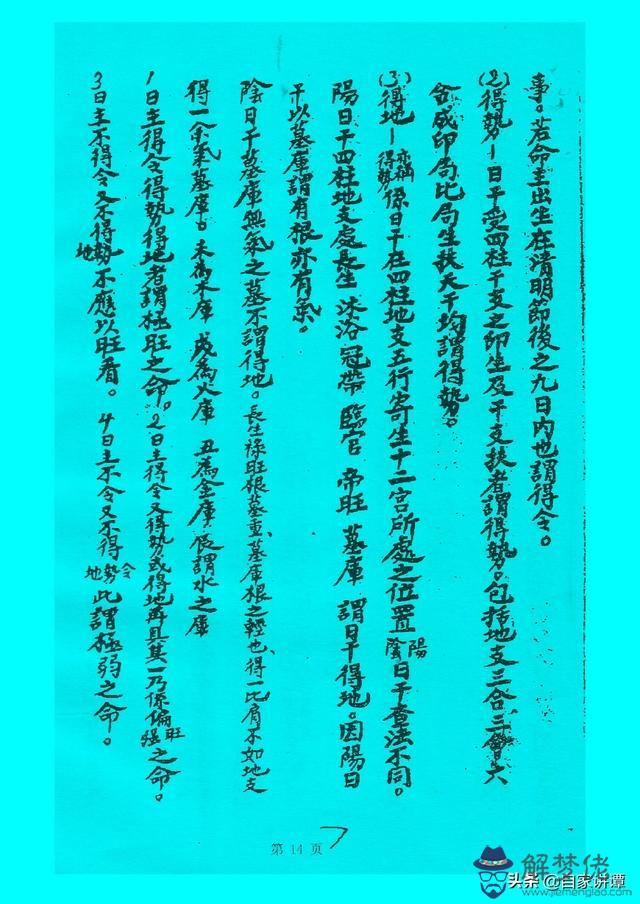 事。若命主出生在清明節後之九日內也謂得令。
(2)得勢—日干受四柱干支之印生及干支扶者謂得勢。包括地支三合、三會六
合,成印局比局生扶天干均謂得勢。
(3)得地—亦稱得勢係日干在四柱地支五行寄生十二宮所處之位置陰陽日干查法不同。
陽日干四柱地支處長生 沐浴 冠帶 臨官 帝旺 墓庫 謂日干得地。因陽日
干以墓庫謂有根亦有氣。
陰日干墓庫無氣之墓不謂得地。長生祿旺根基重、墓庫根之輕也、得一比肩不如地支
得一余氣墓庫。未為木庫 戌為火庫 丑為金庫 辰謂水之庫
1日主得令得勢得地者謂極旺之命。2日主得令又得勢或得地再具其一乃係偏旺強之命。
3日主不得令又不得勢地不應以旺看。4日主不令又不得令勢地此謂極弱之命。
第 14 页
解梦佬
www.jiemenglao.com
头条 @自家讲谭